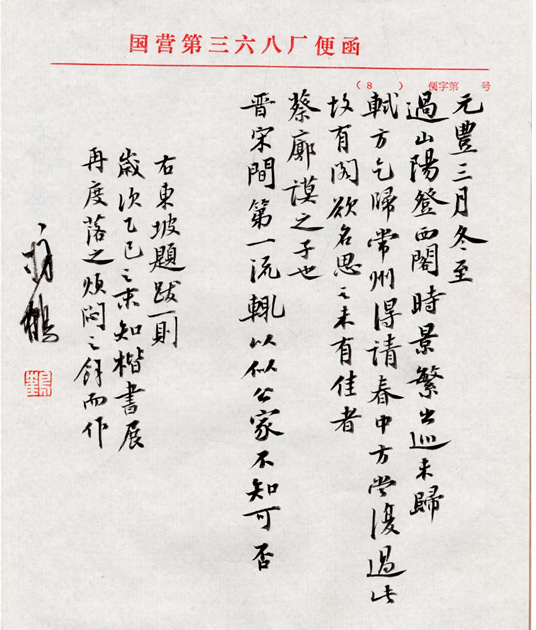 国营第三六八厂便函
（8　）　便字第　号
元豐三月冬至
過山陽登西閣時景繁出巡未歸
軾方乞歸常州得請春中方當復過此
故有閣欲名思之未有佳者
蔡廓謨之子也
晋宋間第一流輒以似公家不知可否
右東坡題跋一則
歲次乙巳之末知楷書展
再度落之煩悶之餘而作